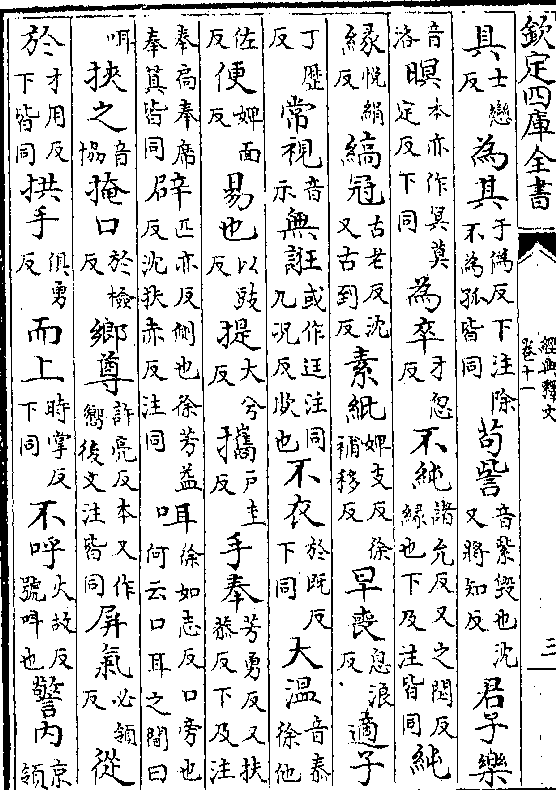 欽定四庫全書
經典釋文
卷十一
三
具士戀反為其于偽反下注除不為孤皆同苟訾音紫毀也沈又將知反君子樂
音洛暝本亦作冥莫定反下同為卒才忽反不純諸允反又之閏反緣也下及注皆同純
緣悅絹反縞冠古老反沈又古到反素紕婢支反徐補移反早喪息浪反適子
丁歷反常視音示無誑或作迋注同九況反欺也不衣於既反下同大溫音泰徐他
佐反便婢面反易也以豉反提大兮反攜戶圭反手奉芳勇反又扶恭反下及注
奉扃奉席奉箕皆同辟匹亦反側也徐芳益反沈扶赤反注同咡徐如志反口旁也何云口耳之間曰
咡挾之音協掩口於檢反鄉尊許亮反本又作嚮後文注皆同屏氣必領反從
於才用反下皆同拱手俱勇反而上時掌反下同不呼火故反號呌也警內京領